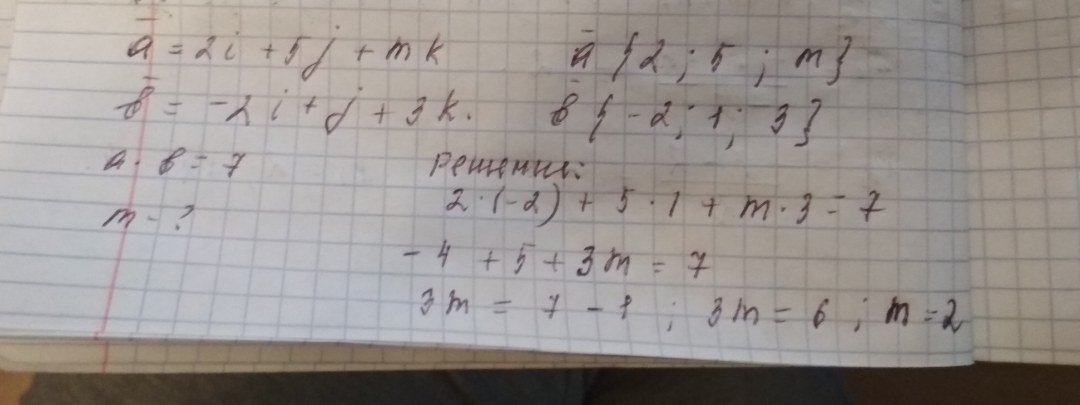 ā = 2i + 5j + mk ā {2 ; 5 ; m}
в̄ = -2i + j + 3k. в̄ {-2; 1; 3}
a · в = 7 Решение:
m - ? 2·(-2) + 5·1 + m·3 = 7
-4 + 5 + 3m = 7
3m = 7 - 1 ; 3m = 6 ; m = 2